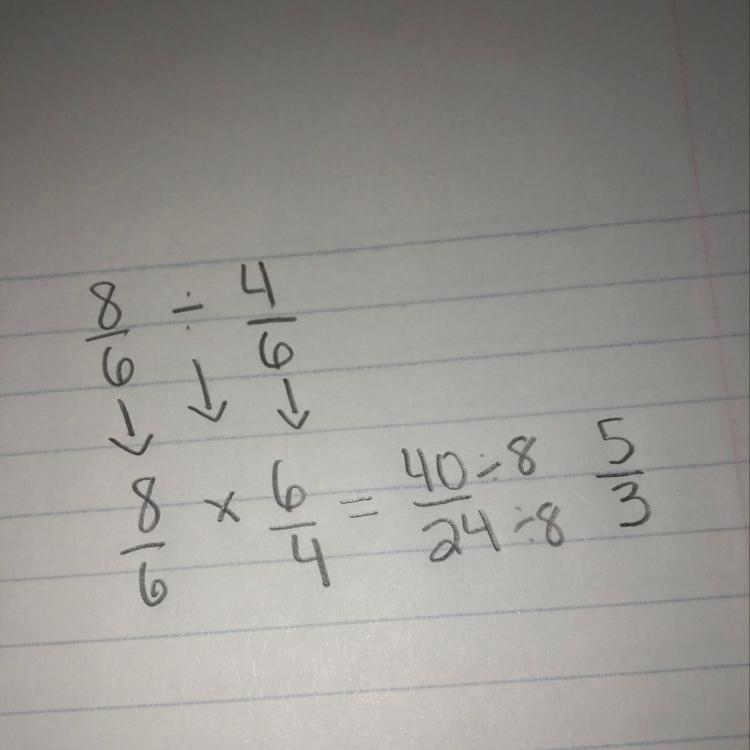 8/6 ÷ 4/6
↓ ↓ ↓
8/6 × 6/4 = 40÷8/24÷8 5/3